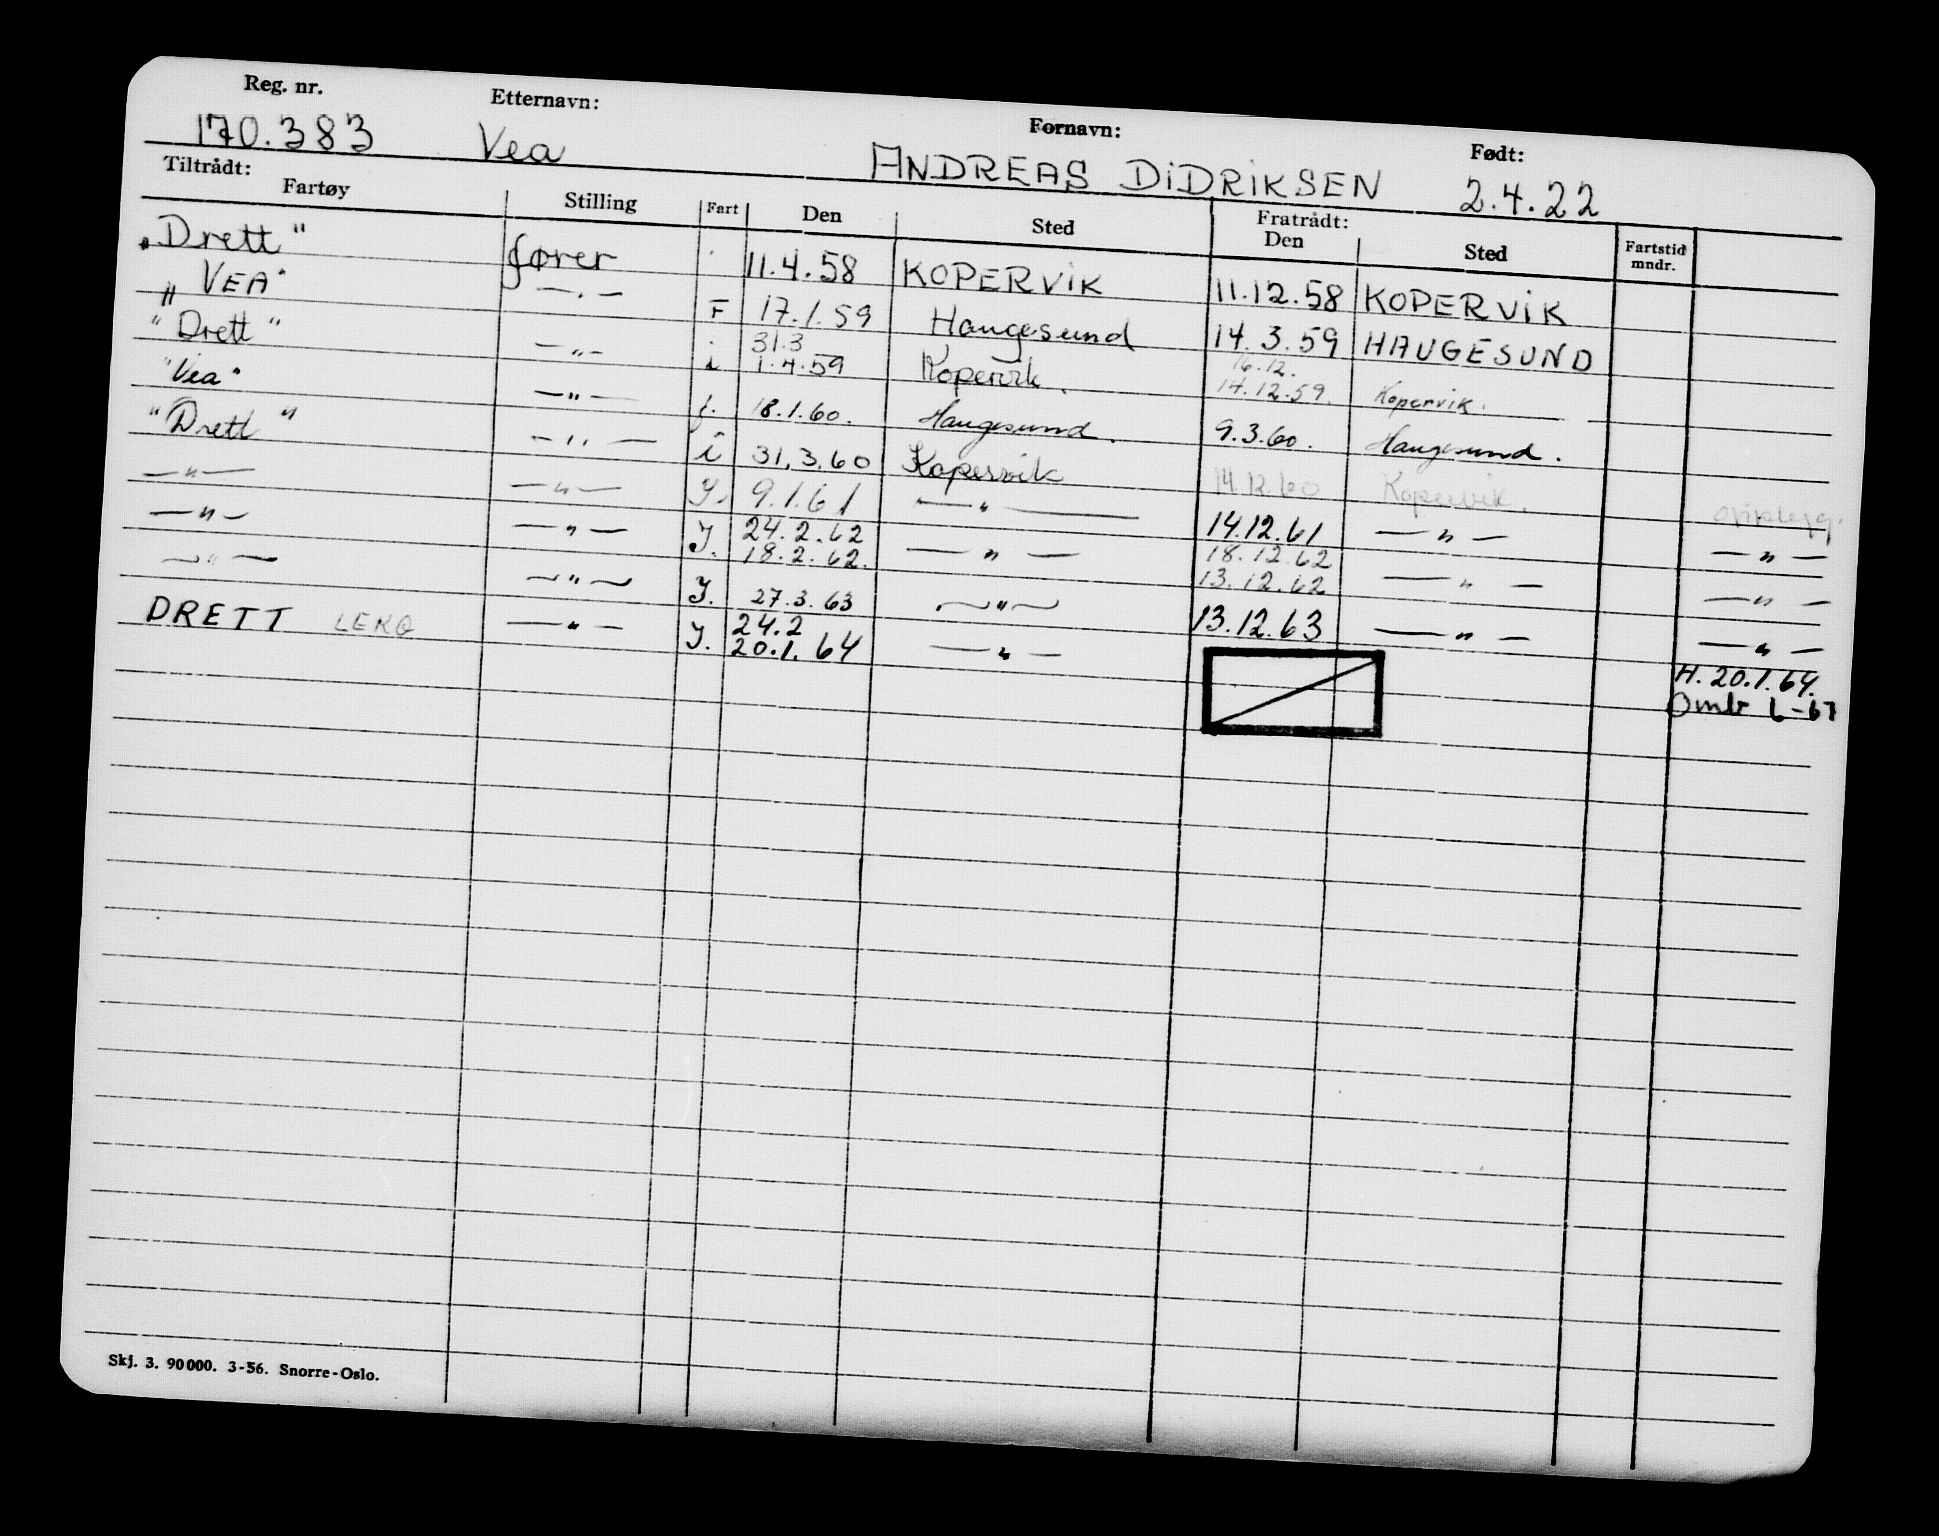 Reg. nr. Etternavn: Fornavn: Født:
170.383 Vea ANDREAS DiDRiKSEN 2.4.22
Tiltrådt: Fratrådt:
Fartøy Stilling Fart Den Sted Den Sted Fartstid mndr.
"Drett" fører 11.4.58 KOPERViK 11.12.58 KOPERViK
"VEA" —"— F 17.1.59 Haugesund 14.3.59 HAUGESUND
31.3 16.12.
"Drett" —"— i 1.4.59 Kopervik. 14.12.59. Kopervik.
"Vea" —"— f. 18.1.60. Haugesund. 9.3.60. Haugesund.
"Drett" —"— i 31.3.60 Kopervik 14.12.60 Kopervik. opplegg.
—"— —"— J. 9.1.61 —"— 14.12.61 —"— —"—
24.2.62 18.12.62
—"— —"— J. 18.2.62. —"— 13.12.62 —"— —"—
—"— —"— J. 27.3.63 —"— 13.12.63 —"— —"—
24.2
DRETT LEKQ —"— J. 20.1.64 —"— H. 20.1.64.
Omb 6-67
Skj. 3. 90000. 3-56. Snorre-Oslo.